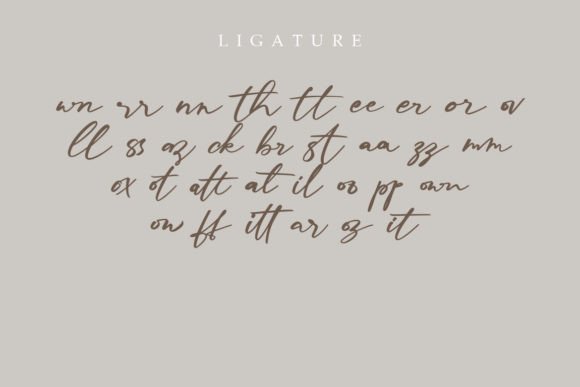 LIGATURE
wn rr nn th tt ee er or ov
ll ss az ck br st aa zz mm
ox ot att at il os pp own
ow ff itt ar oz it